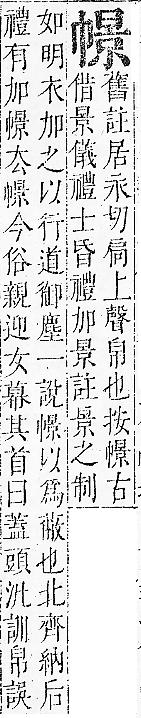 幜
舊註居永切扃上聲帛也按幜古
借景儀禮士昏禮加景註景之制
如明衣加之以行道御塵一說幜以爲蔽也北齊納后
禮有加幜厺幜今俗親迎女幕其首曰蓋頭汎訓帛誤